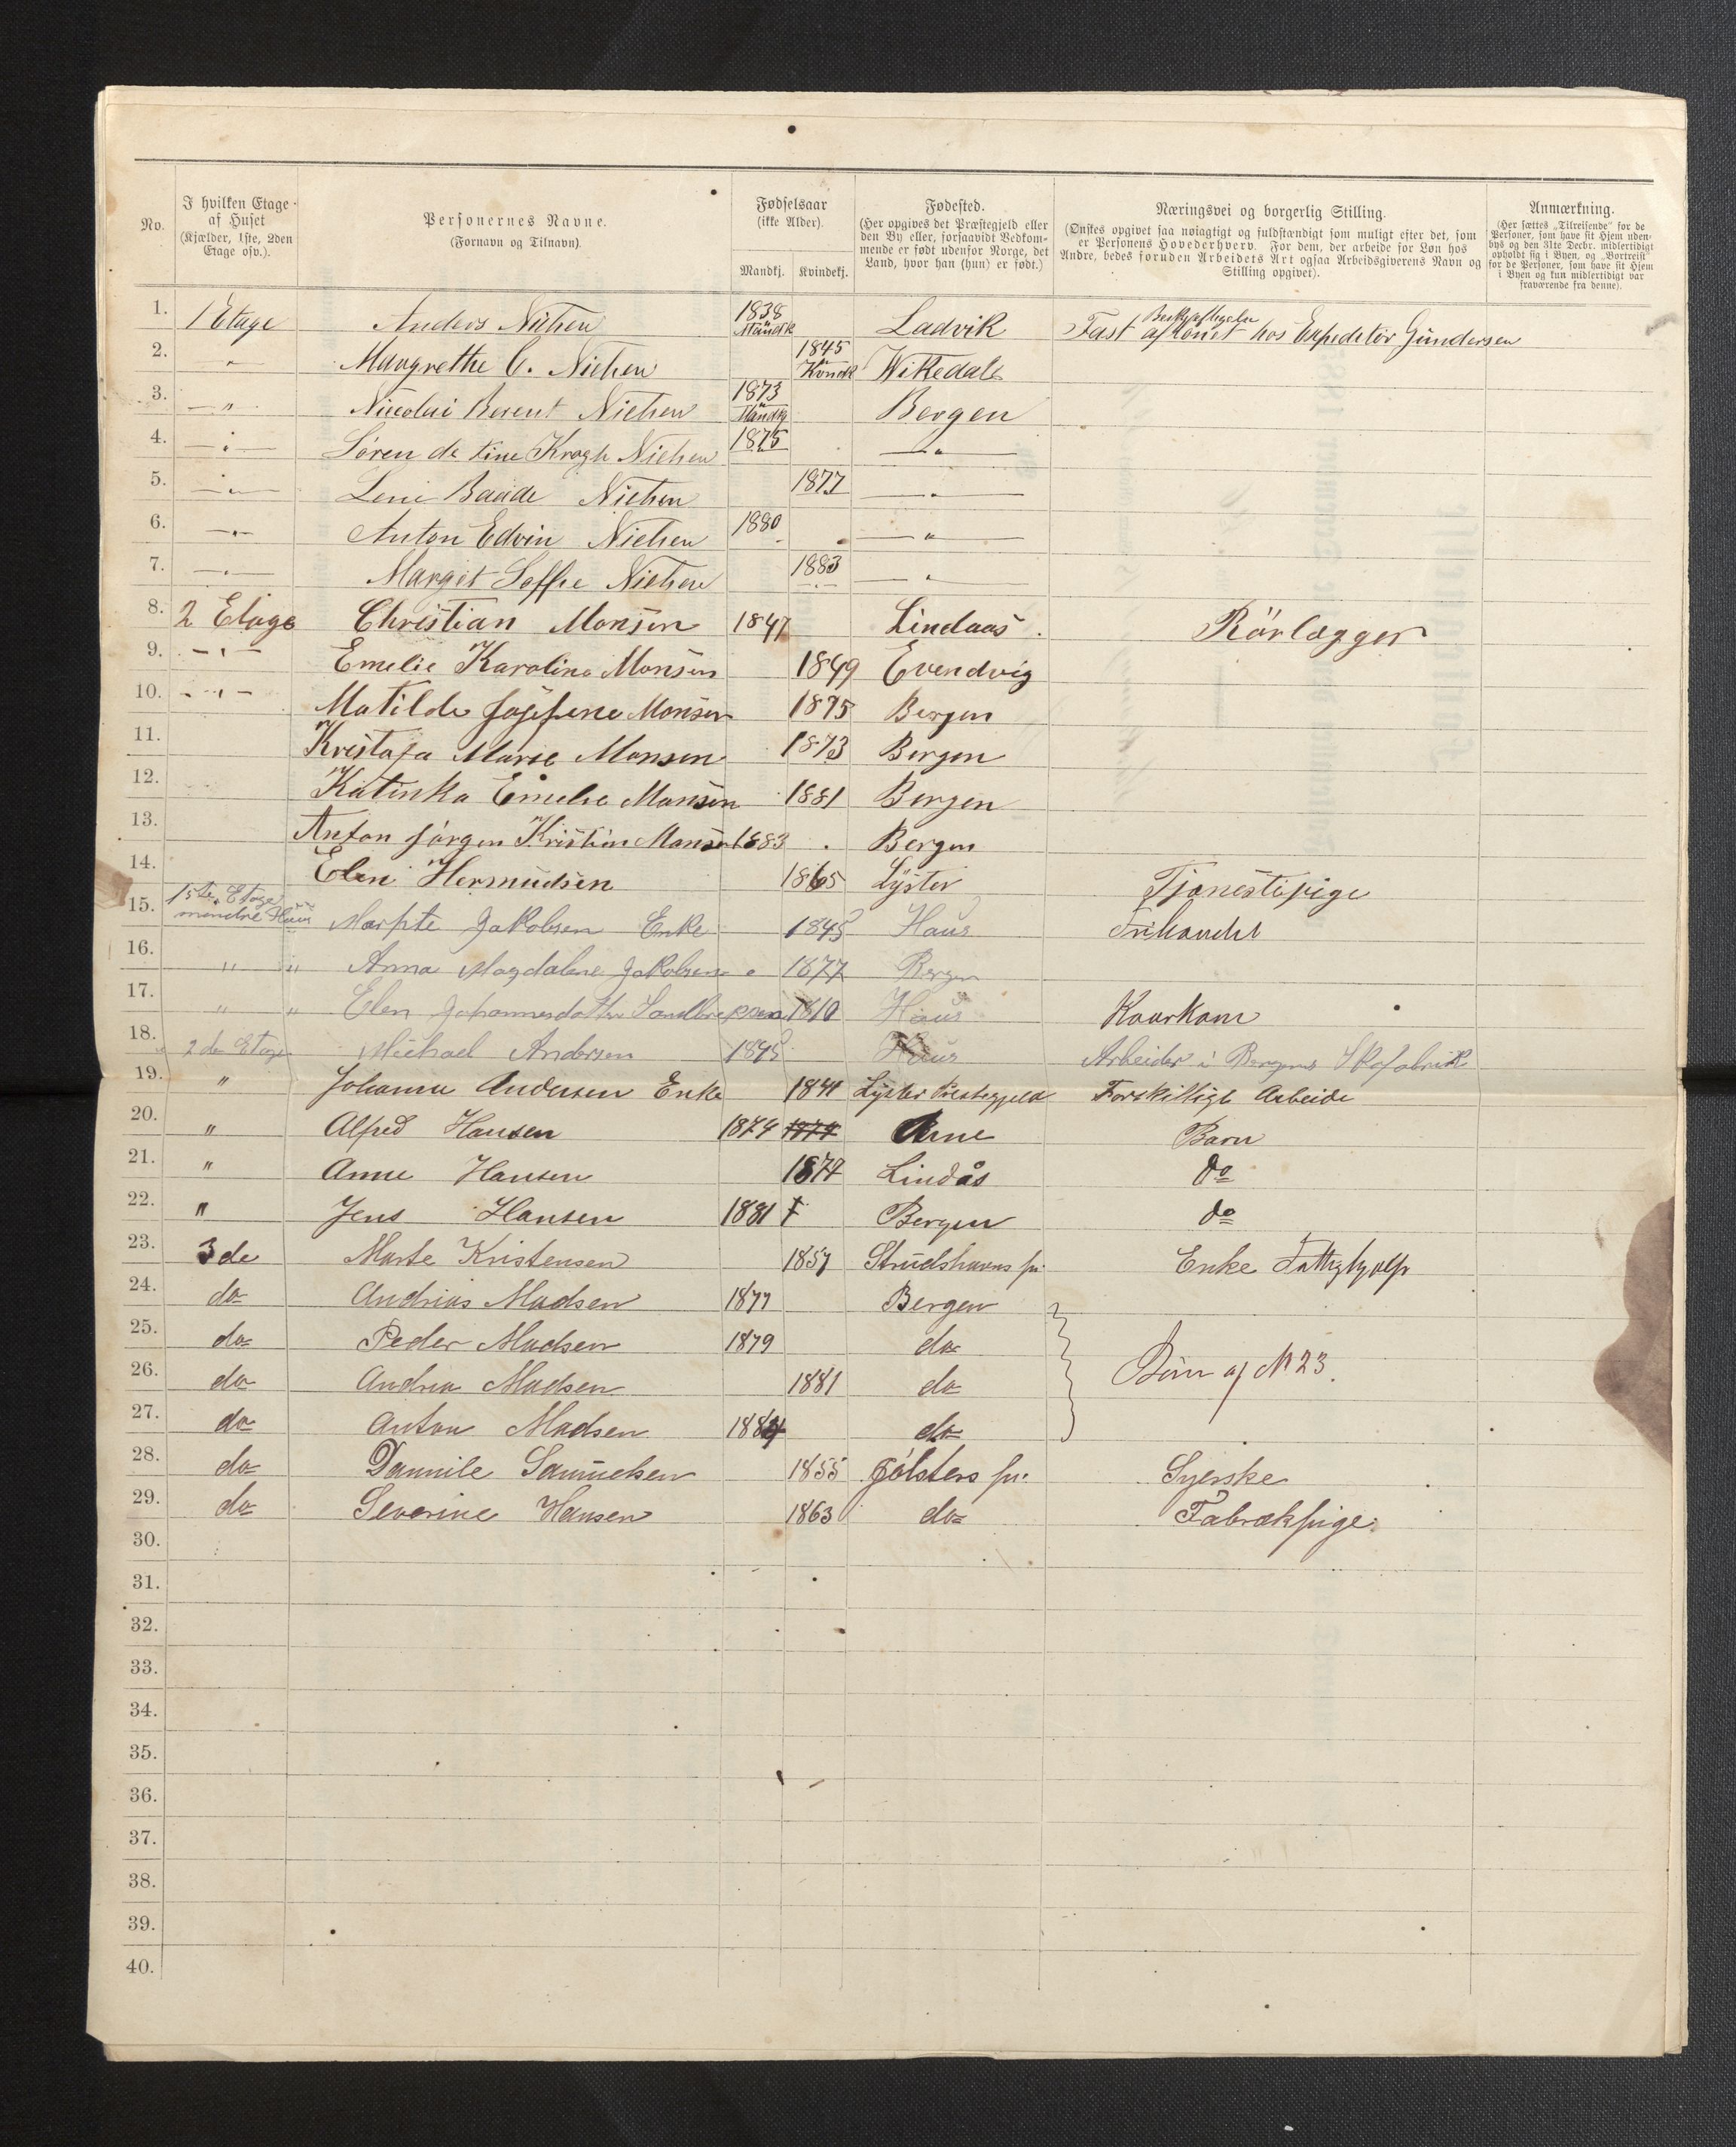 No.
I hvilken Etage af Huset (Kjælder, 1ste, 2den Etage osv.).
Personernes Navne. (Fornavn og Tilnavn).
Fødselsaar (ikke Alder).
Mandkj. Kvindekj.
Fødested. (Her opgives det Præstegjeld eller den By eller, forsaavidt Vedkommende er født udenfor Norge, det Land, hvor han (hun) er født.)
Næringsvei og borgerlig Stilling. (Ønskes opgivet saa nøiagtigt og fuldstændigt som muligt efter det, som er Personens Hovederhverv. For dem, der arbeide for Løn hos Andre, bedes foruden Arbeidets Art ogsaa Arbeidsgiverens Navn og Stilling opgivet).
Anmærkning. (Her sættes „Tilreisende“ for de Personer, som have sit Hjem udenbys og den 31te Decbr. midlertidigt opholdt sig i Byen, og „Bortreist“ for de Personer, som have sit Hjem i Byen og kun midlertidigt var fraværende fra denne).
1. 1 Etage Anders Nielsen 1838 Mandk Ladvik Fast aflönet hos Expeditör Gundersen
2. " Margrethe C. Nielsen 1845 Kvindk Wikedals
3. " Nicolai Berent Nielsen 1873 Mandkj Bergen
4. " Søren de Fine Krogh Nielsen 1875 "
5. " Leni Baade Nielsen 1877 "
6. " Anton Edvin Nielsen 1880 "
7. " Margit Soffie Nielsen 1883 "
8. 2 Etage Christian Monsen 1847 Lindaas. Rörlægger
9. " Emelie Karoline Monsen 1849 Evendvig
10. " Matilde Josefine Monsen 1875 Bergen
11. Kristofa Marie Monsen 1873 Bergen
12. Katinka Emelie Monsen 1881 Bergen
13. Anton Jørgen Kristian Monsen 1883 Bergen
14. Elen Hermudsen 1865 Lyster Tjenestepige
15. 1ste Etage mindre Huus Jakobsen Enke 1845 Haus Frihandel
16. " " Anna Magdalene Jakobsen 1877 Bergen
17. " " Elen Johannesdatter 1810 Haus Kaarkone
18. 2de Etage Michael Andersen 1845 Haus Arbeider i Bergens Skofabrik
19. " Johanne Andersen Enke 1841 Lyster Prestegjeld Forskilligt Arbeide
20. " Alfred Hansen 1874 1874 Arne Barn
21. " Anne Hansen 1874 Lindås do
22. " Jens Hansen 1881 Bergen do
23. 3de Marte Kristensen 1851 Strudshavns pr. Enke Fattighjælp
24. do Andrias Madsen 1877 Bergen
25. do Peder Madsen 1879 do
26. do Andrea Madsen 1881 do Börn af No 23.
27. do Anton Madsen 1884 do
28. do Samuelsen 1855 Jölsters pr. Syerske
29. do Severine Hansen 1863 do Fabrækpige.
30.
31.
32.
33.
34.
35.
36.
37.
38.
39.
40.